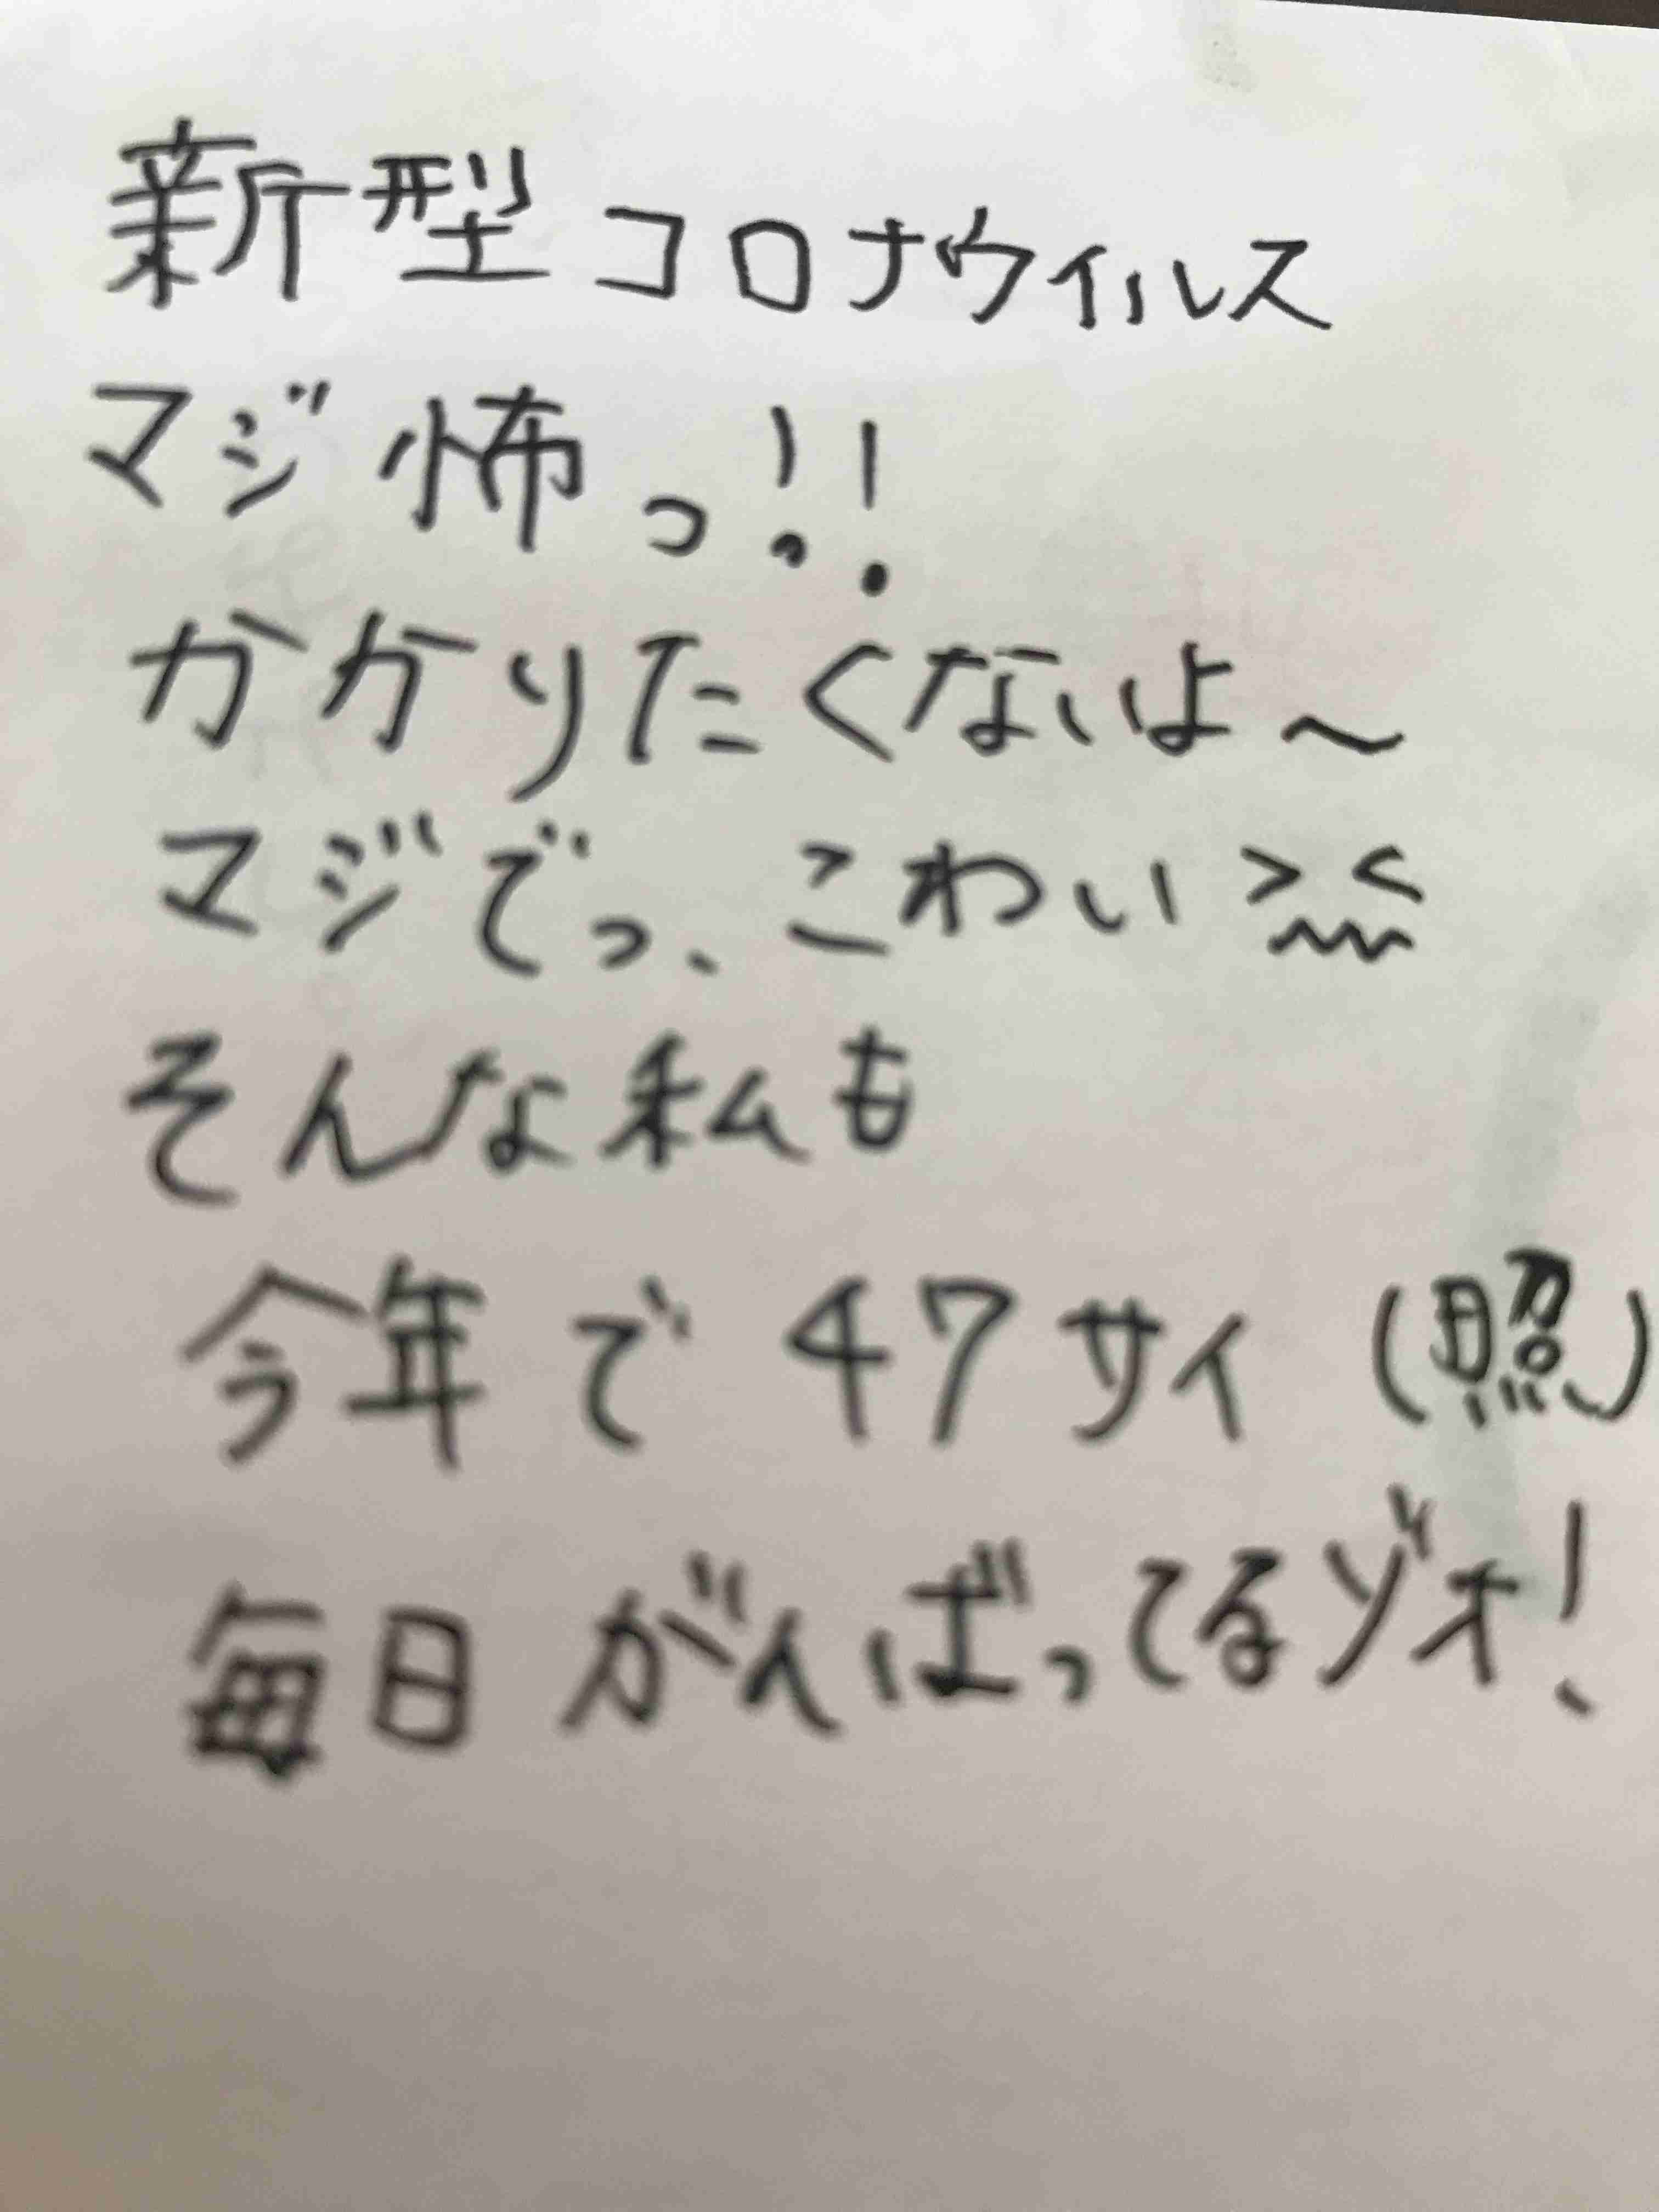 新型コロナウイルス
マジ怖っ!!
かかりたくないよ～
マジでっ、こわい><
そんな私も
今年で47サイ(照)
毎日がんばってるゾォ!